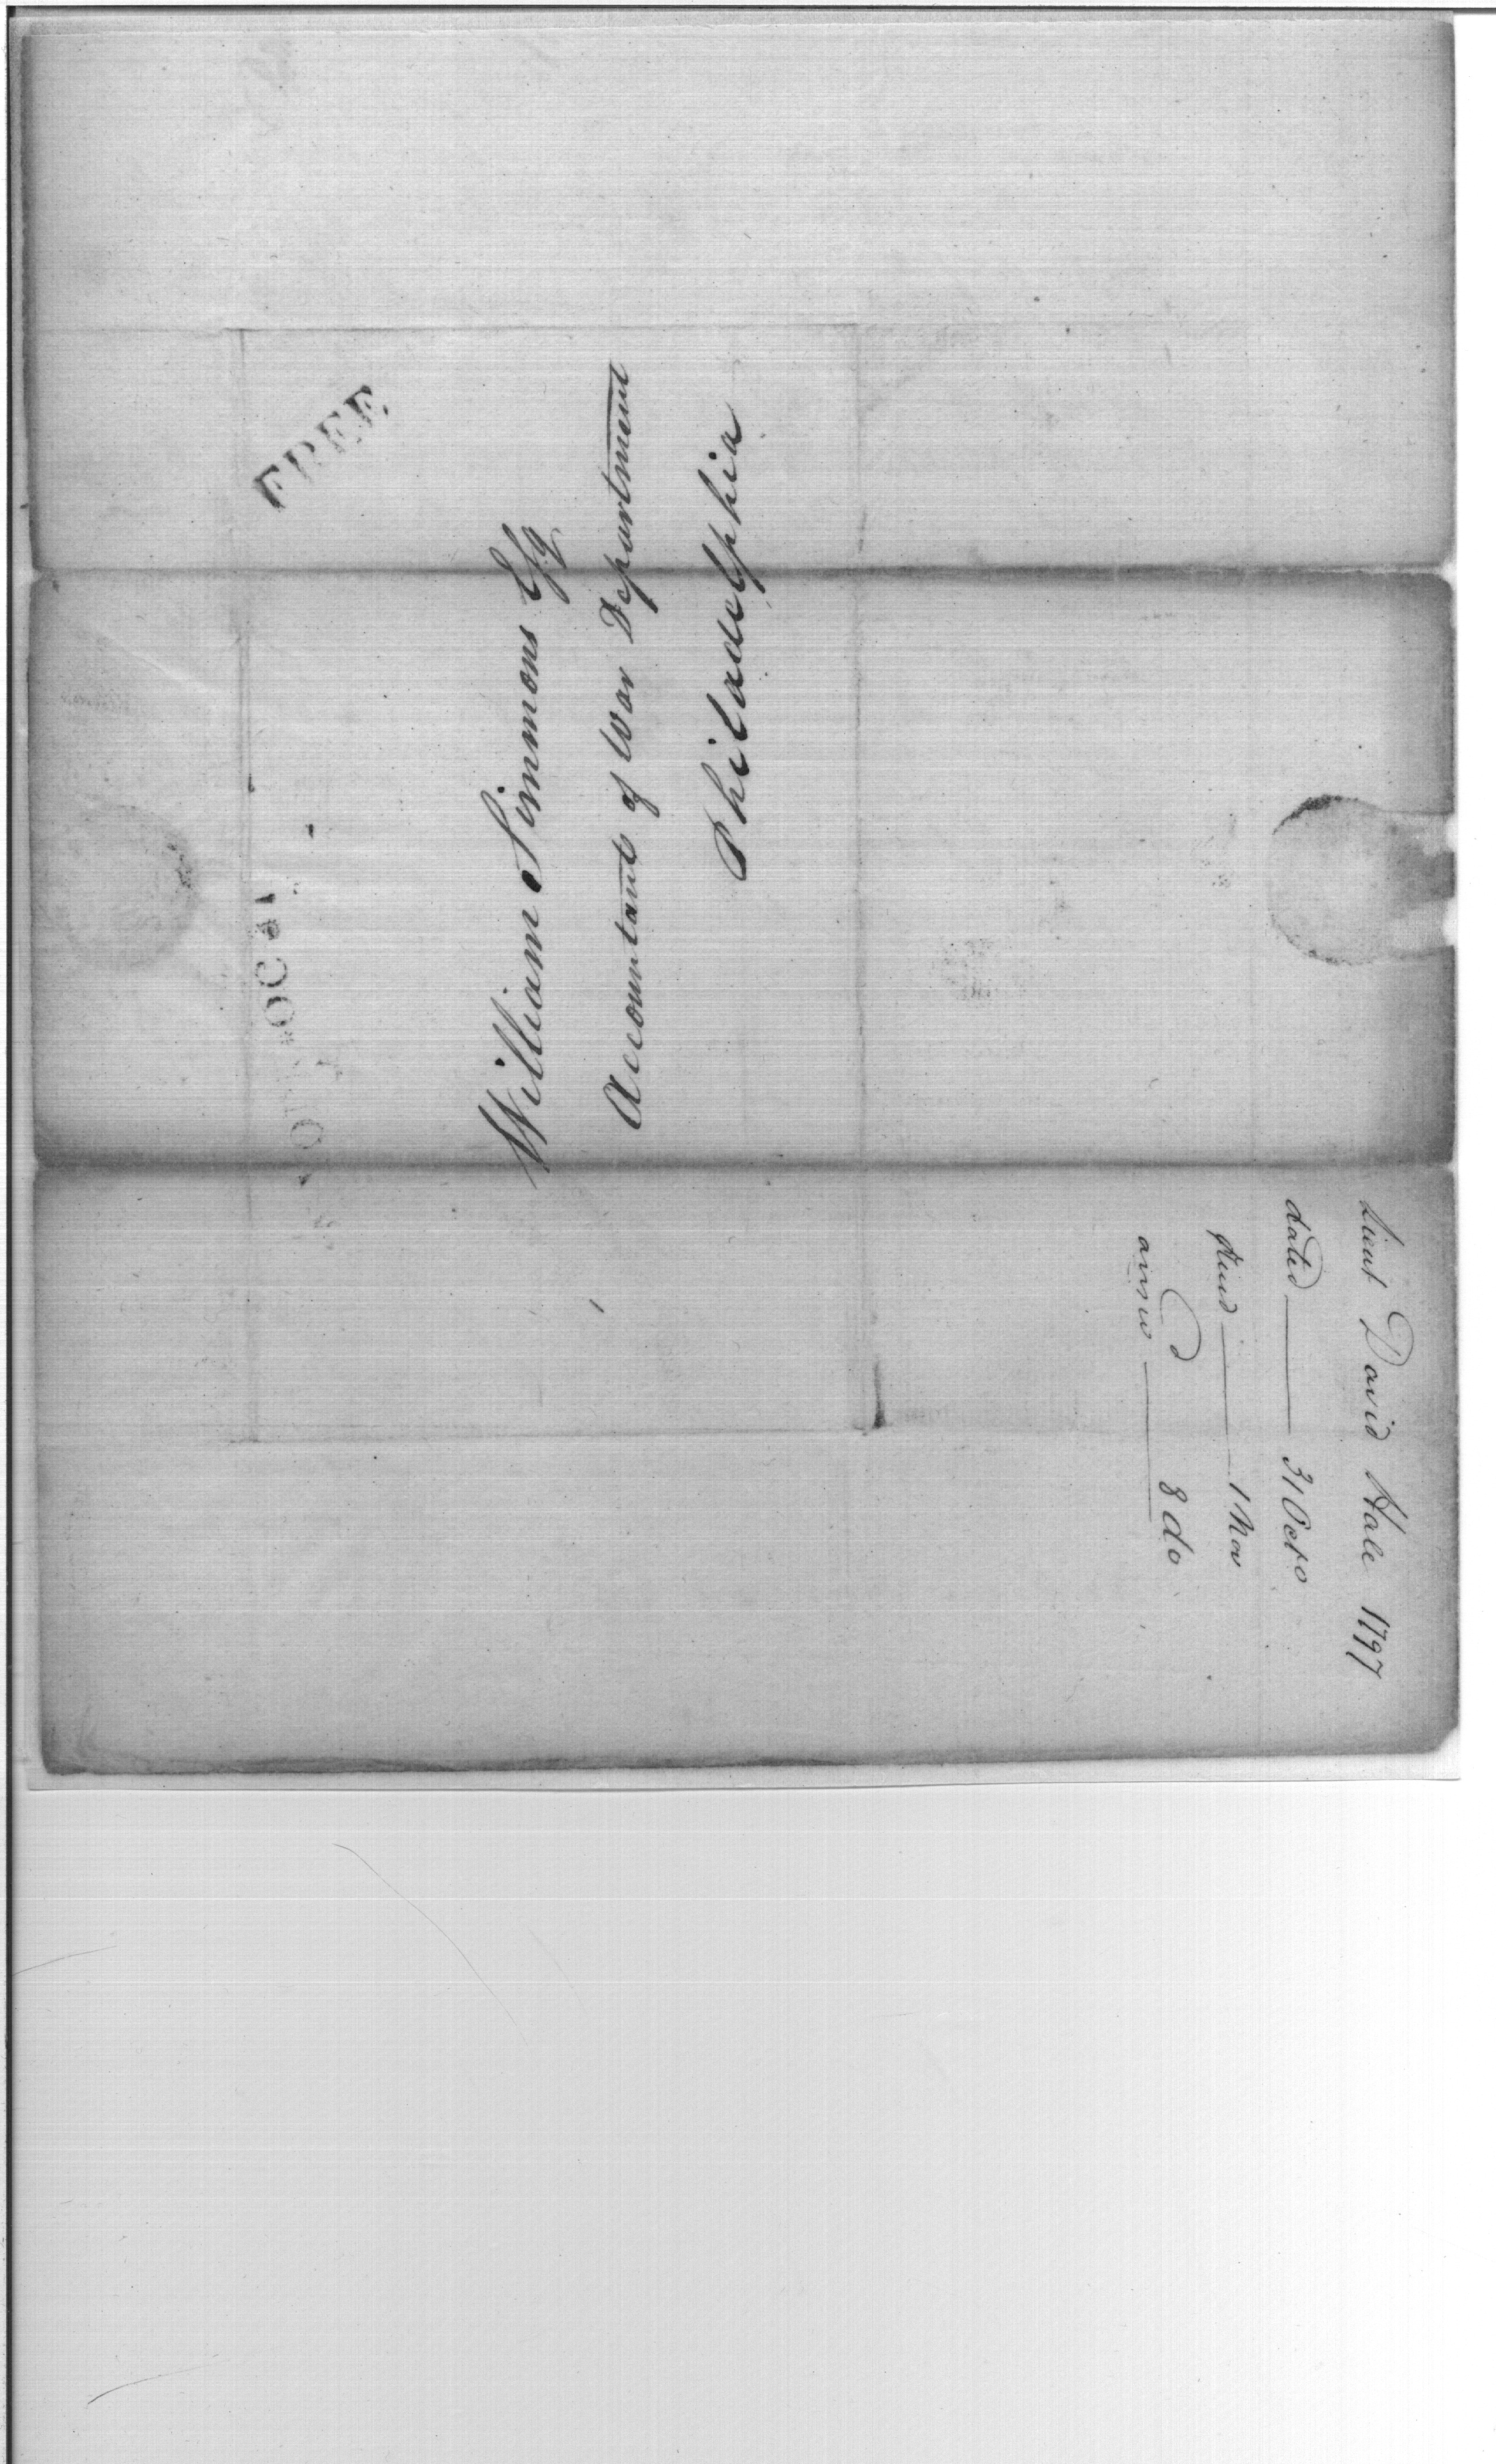 FREE
OC 31
William Simmons Esq
Accountant of War Department
Philadelphia
Lieut David Hale 1797
dated 31 Octo
Recd 1 Nov
answd 8 do